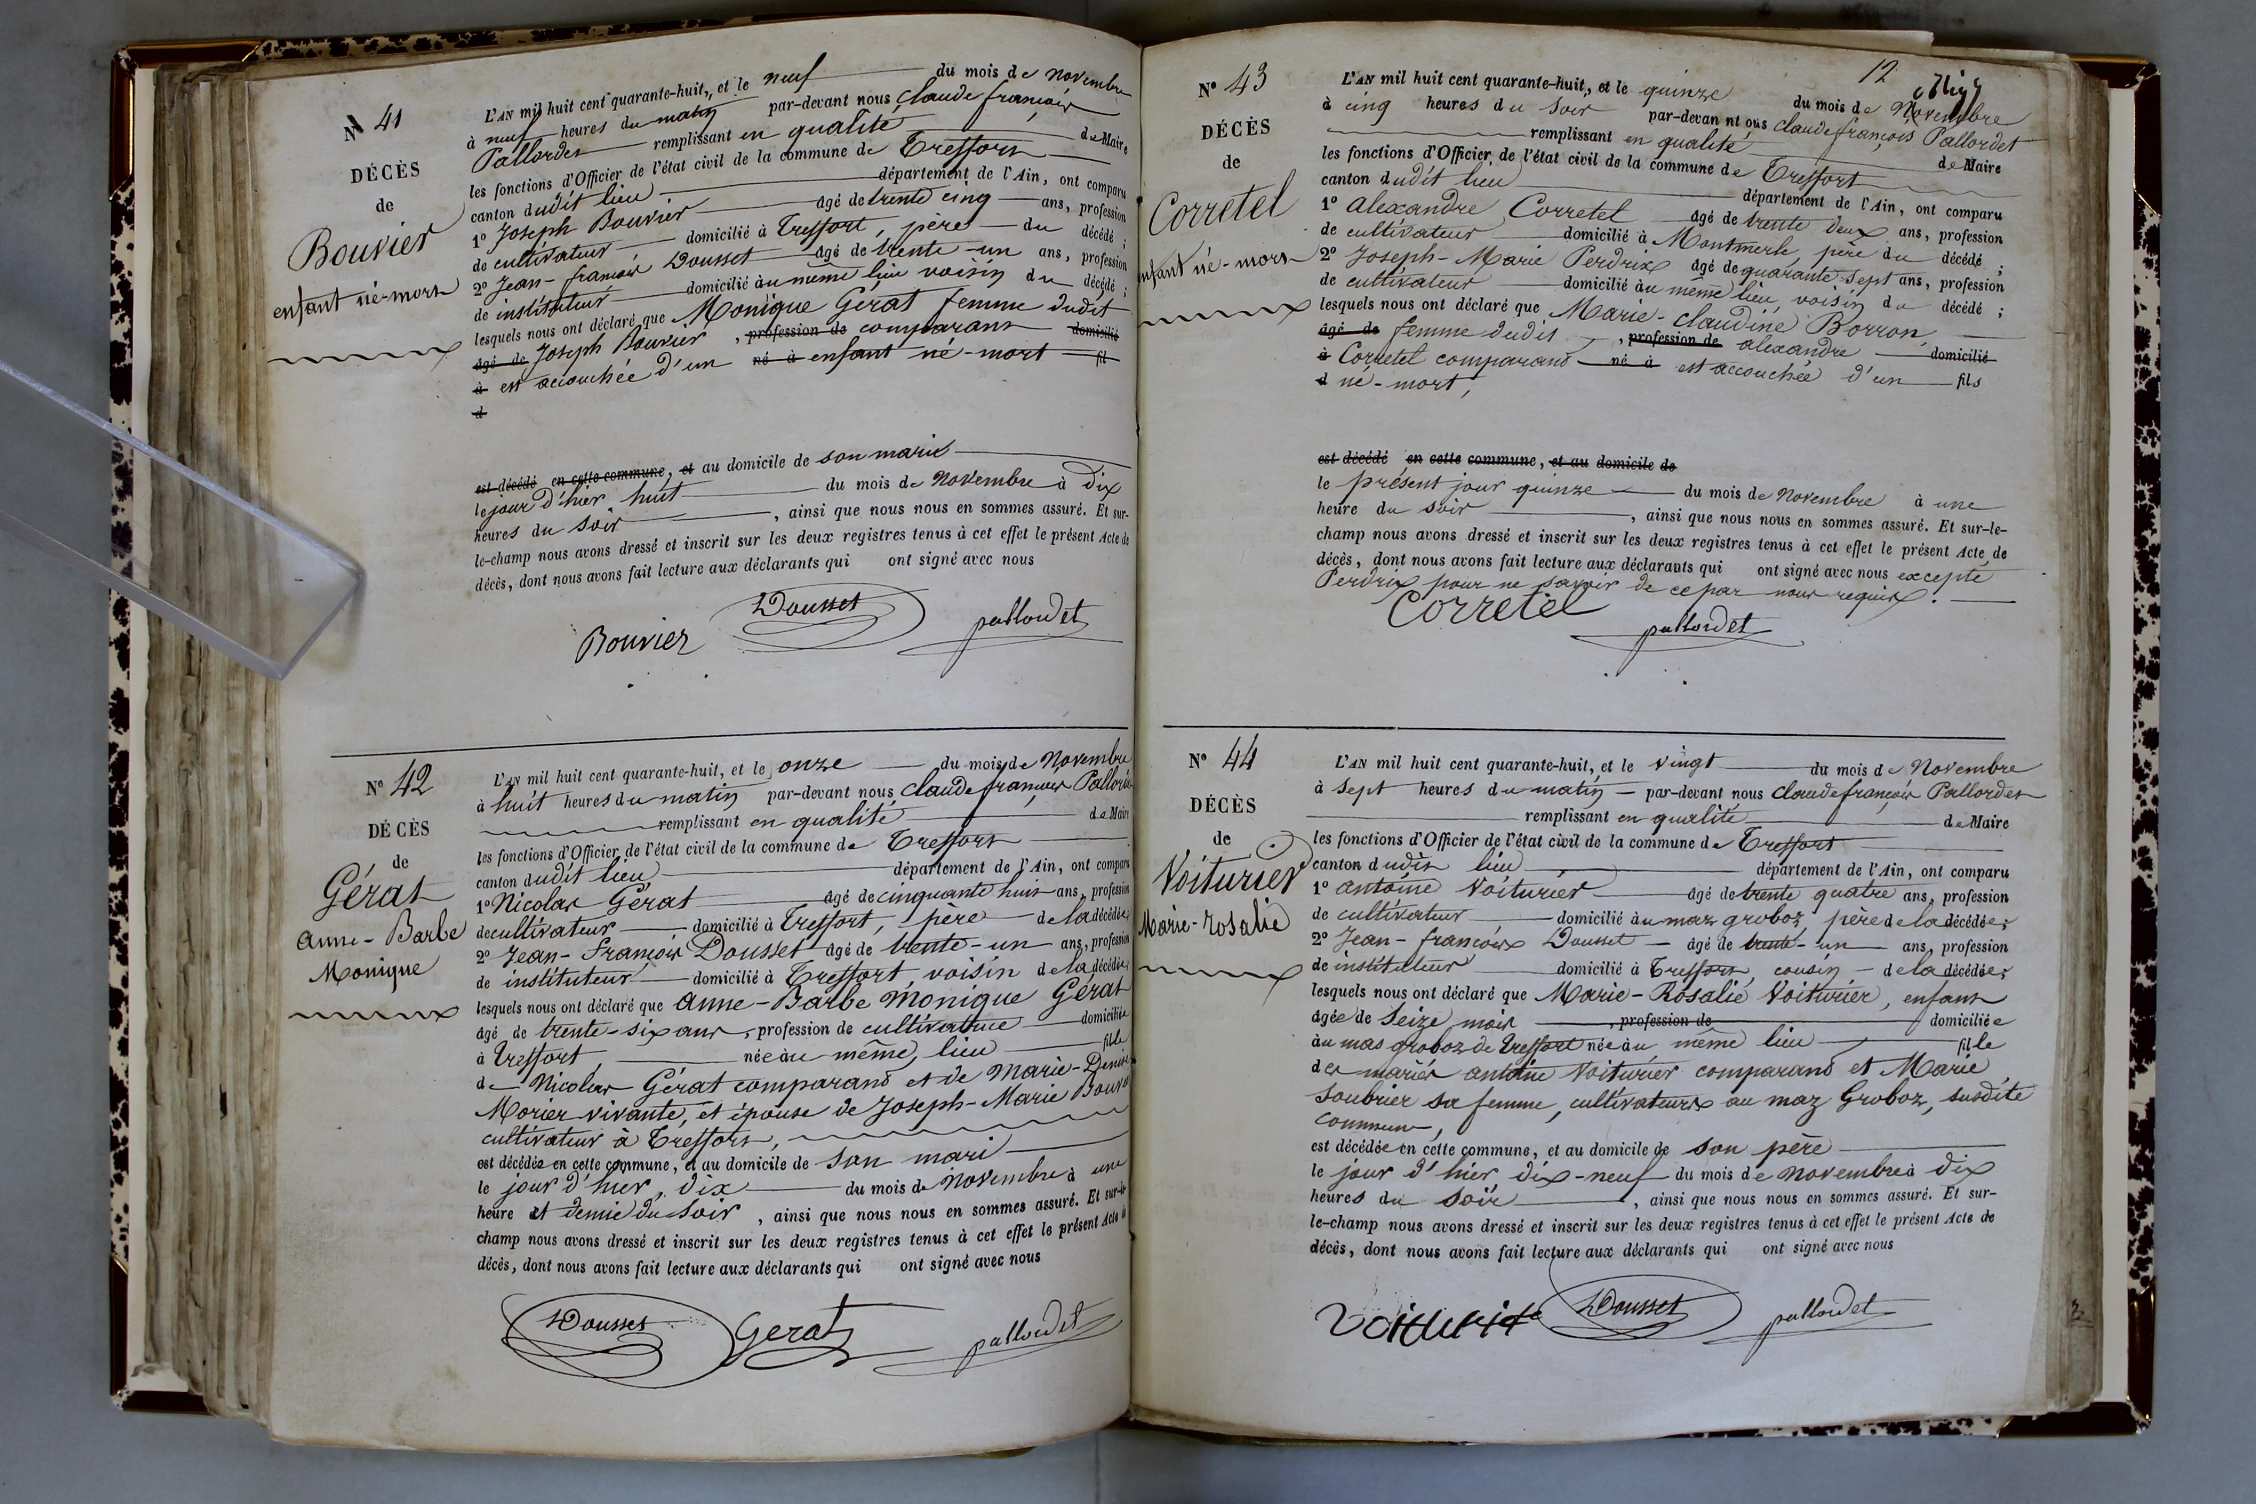 N° 41
DÉCÈS
de
Bouvier
enfant né-mort
L'AN mil huit cent quarante-huit, et le neuf du mois de novembre
à neuf heures du matin par-devant nous Claude françois
Pallordet remplissant en qualité de Maire
les fonctions d'Officier de l'état civil de la commune de Treffort
canton dudit lieu département de l'Ain, ont comparu
1° Joseph Bouvier âgé de trente cinq ans, profession
de cultivateur domicilié à Treffort, père du décédé ;
2° Jean-françois Dousset âgé de trente-un ans, profession
de instituteur domicilié au même lieu voisin du décédé ;
lesquels nous ont déclaré que Monique Gérat femme dudit
âgé de Joseph Bouvier, profession de comparant domicilié
à est accouchée d'un né à enfant né-mort fil
d
est décédé en cette commune, et au domicile de son mari
le jour d'hier huit du mois de novembre à dix
heures du soir, ainsi que nous nous en sommes assuré. Et sur-
le-champ nous avons dressé et inscrit sur les deux registres tenus à cet effet le présent Acte de
décès, dont nous avons fait lecture aux déclarants qui ont signé avec nous
Bouvier Dousset pallordet
N° 42
DÉCÈS
de
Gérat
anne-Barbe
Monique
L'AN mil huit cent quarante-huit, et le onze du mois de Novembre
à huit heures du matin par-devant nous Claude françois
remplissant en qualité de Maire
les fonctions d'Officier de l'état civil de la commune de Treffort
canton dudit lieu département de l'Ain, ont comparu
1° Nicolas Gérat âgé de cinquante huit ans, profession
de cultivateur domicilié à Treffort, père de la décédée ;
2° Jean-François Dousset âgé de trente-un ans, profession
de instituteur domicilié à Treffort, voisin de la décédée ;
lesquels nous ont déclaré que anne-Barbe Monique Gérat
âgé de trente-six ans, profession de cultivatrice domiciliée
à Treffort née au même lieu fille
de Nicolas Gérat comparant et de Marie-Denise
Morier vivante, et épouse de Joseph-Marie
cultivateur à Treffort,
est décédée en cette commune, et au domicile de son mari
le jour d'hier, dix du mois de Novembre à une
heure et demie du soir, ainsi que nous nous en sommes assuré. Et sur-le-
champ nous avons dressé et inscrit sur les deux registres tenus à cet effet le présent Acte de
décès, dont nous avons fait lecture aux déclarants qui ont signé avec nous
Dousset Gerat pallordet
12
N° 43
DÉCÈS
de
Corretel
enfant né-mort
L'AN mil huit cent quarante-huit, et le quinze du mois de Novembre
à cinq heures du soir par-devant nous Claude françois Pallordet
remplissant en qualité de Maire
les fonctions d'Officier de l'état civil de la commune de Treffort
canton dudit lieu département de l'Ain, ont comparu
1° alexandre Corretel âgé de trente deux ans, profession
de cultivateur domicilié à Montmerle, père du décédé ;
2° Joseph-Marie Perdrix âgé de quarante-sept ans, profession
de cultivateur domicilié au même lieu, voisin du décédé ;
lesquels nous ont déclaré que Marie-Claudine Borron,
âgé de femme dudit, profession de alexandre domicilié
à Corretel comparant né à est accouchée d'un fils
d né-mort,
est décédé en cette commune, et au domicile de
le présent jour quinze du mois de Novembre à une
heure du soir, ainsi que nous nous en sommes assuré. Et sur-le-
champ nous avons dressé et inscrit sur les deux registres tenus à cet effet le présent Acte de
décès, dont nous avons fait lecture aux déclarants qui ont signé avec nous excepté
Perdrix pour ne savoir de ce par nous requis.
Corretel pallordet
N° 44
DÉCÈS
de
Voiturier
Marie-rosalie
L'AN mil huit cent quarante-huit, et le vingt du mois de Novembre
à sept heures du matin par-devant nous Claude françois Pallordet
remplissant en qualité de Maire
les fonctions d'Officier de l'état civil de la commune de Treffort
canton dudit lieu département de l'Ain, ont comparu
1° antoine Voiturier âgé de trente quatre ans, profession
de cultivateur domicilié au maz groboz, père de la décédée ;
2° Jean-françois Dousset âgé de trente-un ans, profession
de instituteur domicilié à Treffort, cousin de la décédée ;
lesquels nous ont déclaré que Marie-Rosalie Voiturier, enfant
âgée de Seize mois, profession de domiciliée
au mas groboz de Treffort née au même lieu fille
des mariés antoine Voiturier comparant et Marie
Soubrier sa femme, cultivateurs au maz Groboz, susdite
commune,
est décédée en cette commune, et au domicile de son père
le jour d'hier, dix-neuf du mois de novembre à dix
heures du soir, ainsi que nous nous en sommes assuré. Et sur-
le-champ nous avons dressé et inscrit sur les deux registres tenus à cet effet le présent Acte de
décès, dont nous avons fait lecture aux déclarants qui ont signé avec nous
Dousset pallordet